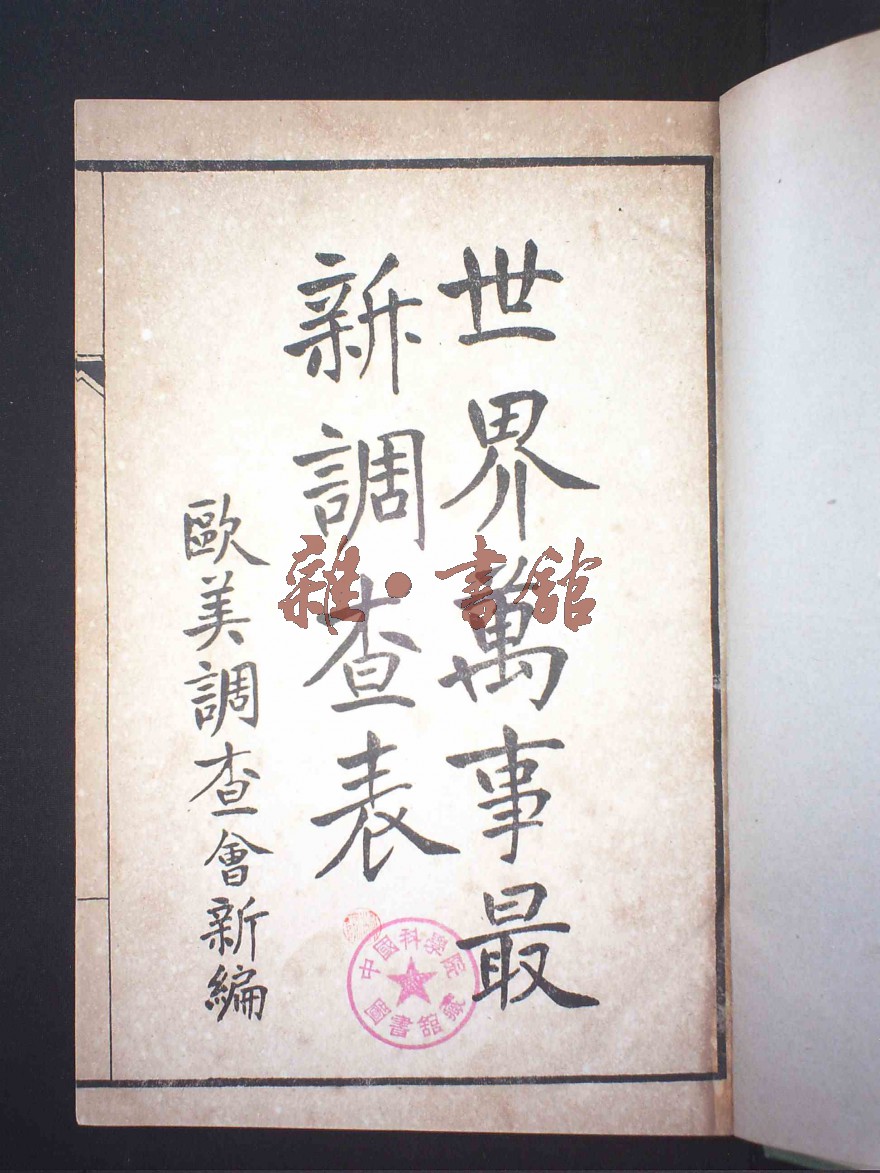 世界萬事最
新調查表
歐美調查會新編
雜·書館
中國科學院
圖書館藏